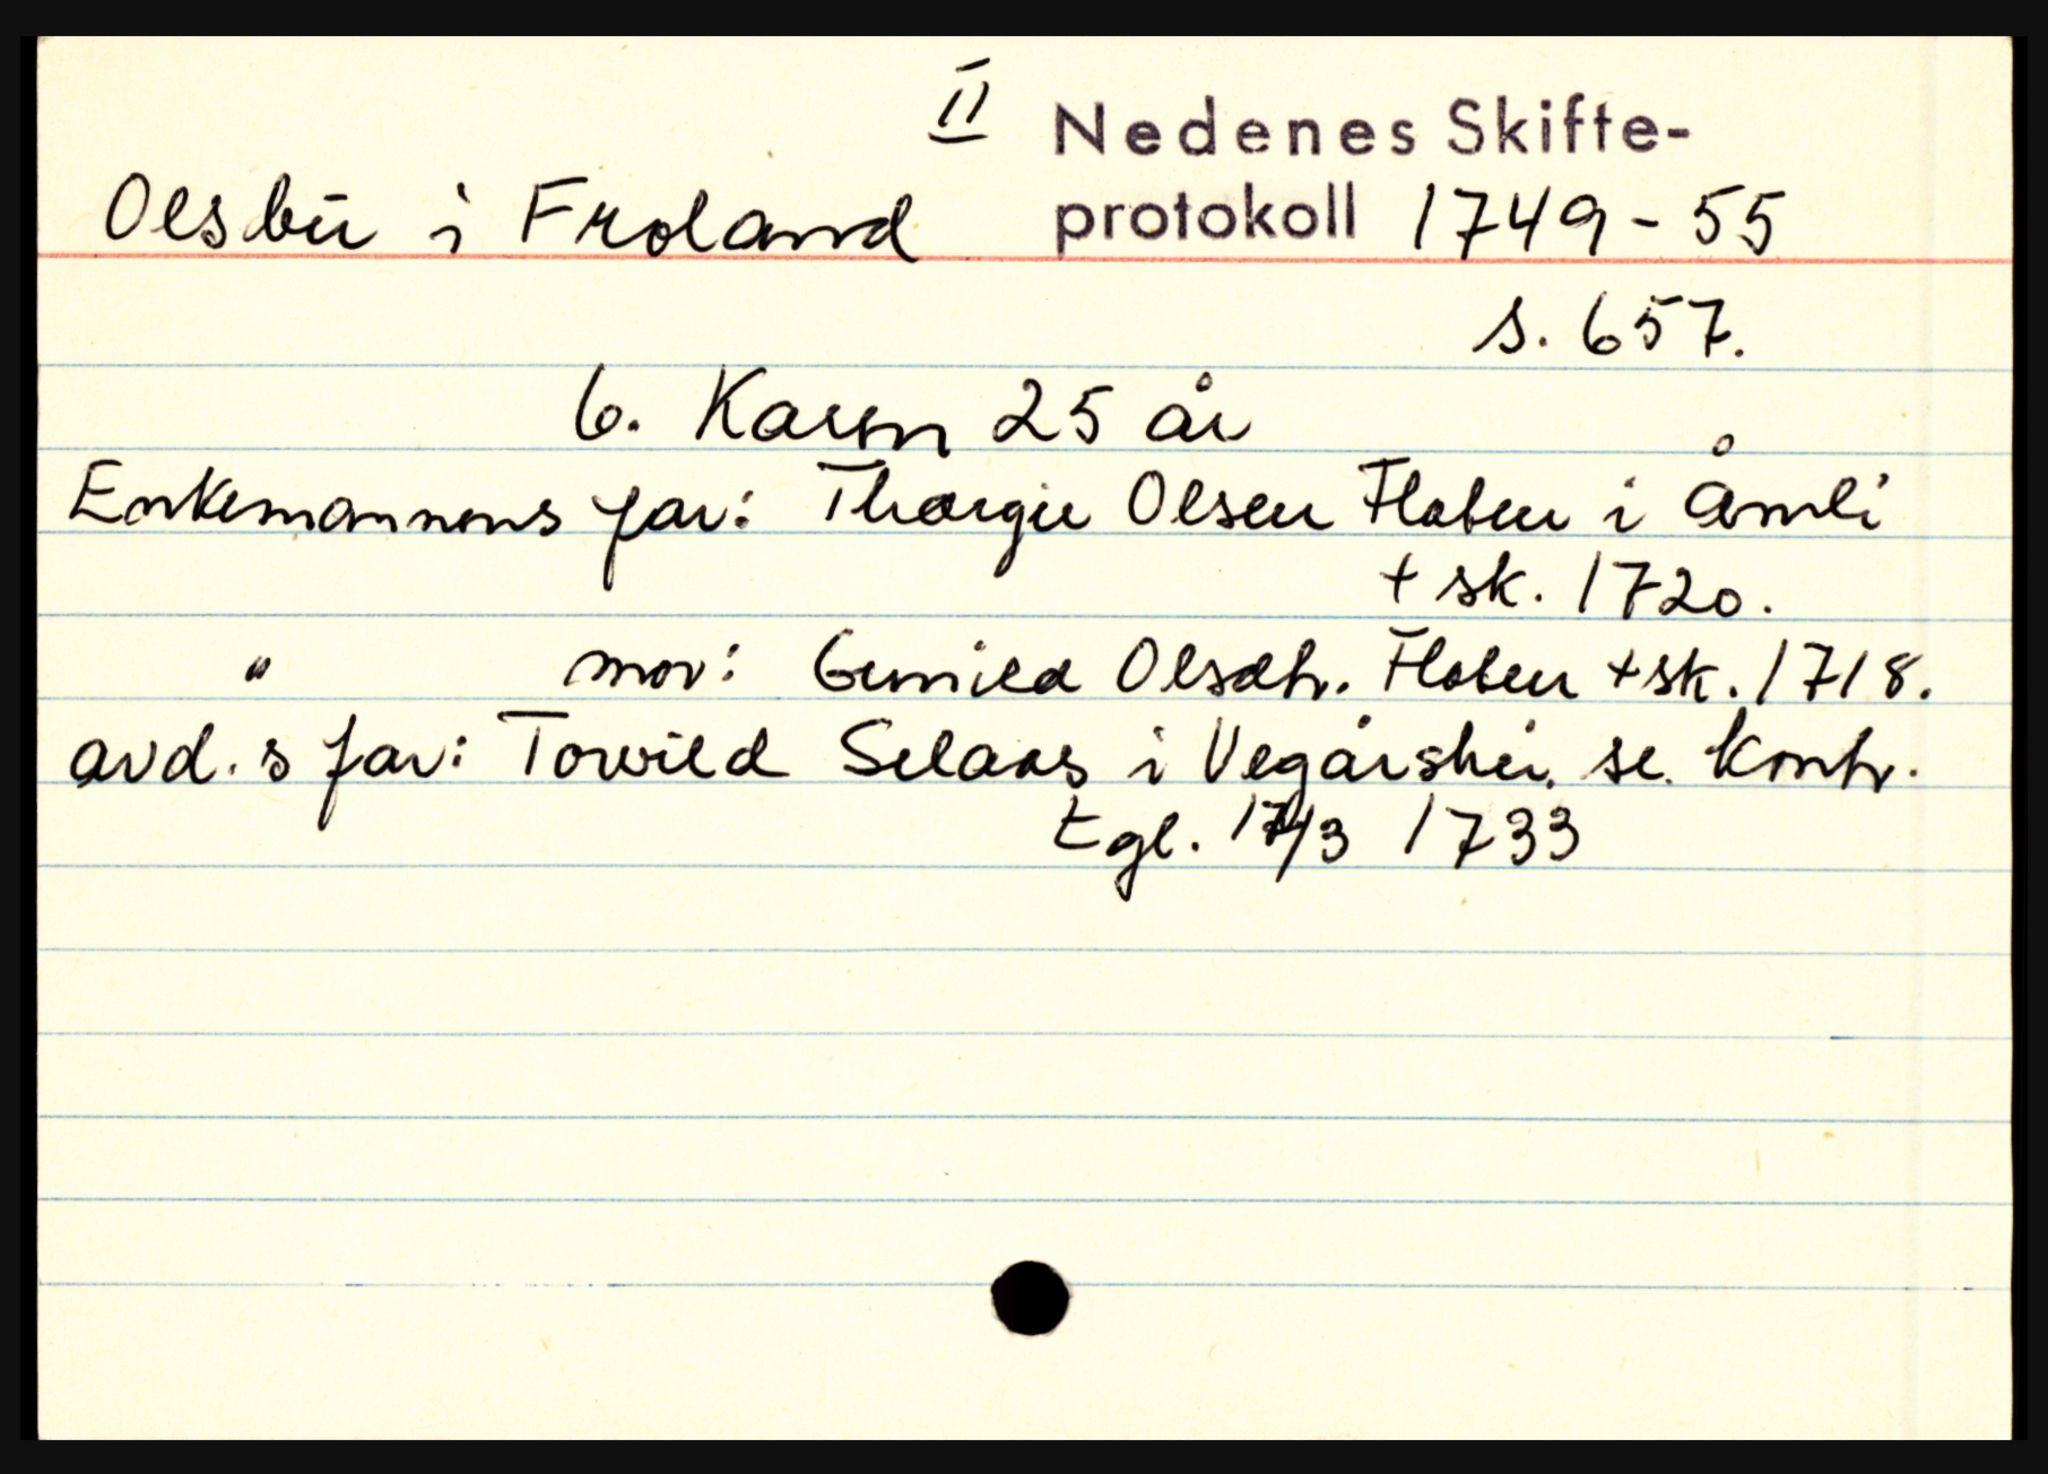 II Nedenes Skifte-
Olsbu i Froland protokoll 1749-55
s. 657.
6. Karen 25 år
Enkemannens far: Thorgie Olsen Flaten i Åmli
+ sk. 1720.
" mor: Gunild Olsdtr. Flaten + sk. 1718.
avd. s far: Torvild Selaas i Vegårshei. se. kontr.
tgl. 17/3 1733